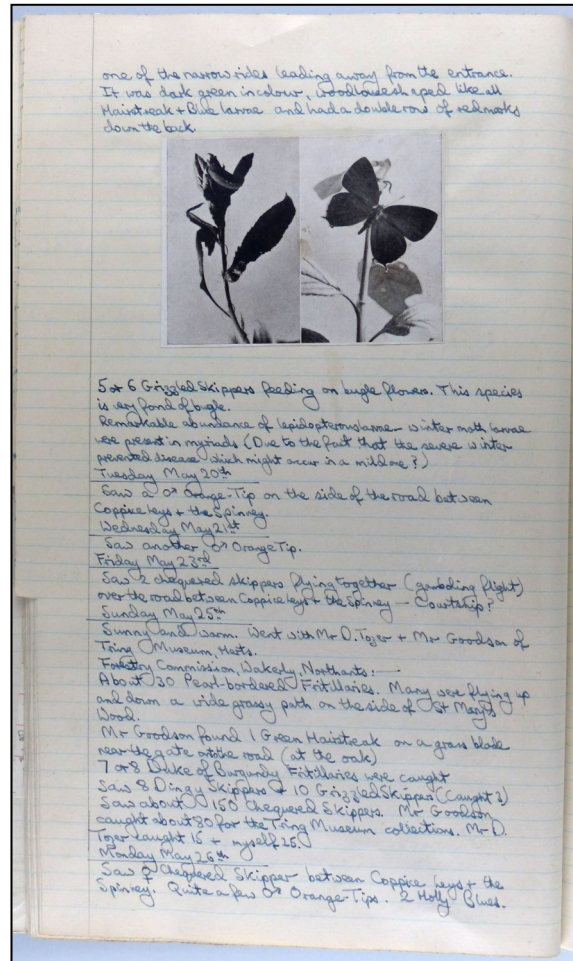 one of the narrow rides leading away from the entrance.
It was dark green in colour, woodlouse shaped like all
Hairstreak + Blue larvae and had a double row of red marks
down the back.
5 or 6 Grizzled Skippers feeding on bugle flowers. This species
is very fond of bugle.
Remarkable abundance of lepidopterous larvae - winter moth larvae
were present in myriads (Due to the fact that the severe winter
prevented disease which might occur in a mild one?)
Tuesday May 20th
Saw a ♂ Orange-Tip on the side of the road between
Coppice Leys + the Spinney.
Wednesday May 21st
Saw another ♂ Orange Tip.
Friday May 23rd
Saw 2 chequered skippers flying together ( flight)
over the road between Coppice Leys + the Spinney — Courtship?
Sunday May 25th
Sunny and warm. Went with Mr D. Tozer + Mr Goodson of
Tring Museum, Herts.
Forestry Commission, Wakerly, Northants: —
About 30 Pearl-bordered Fritillaries. Many were flying up
and down a wide grassy path on the side of St Mary's
Wood.
Mr Goodson found 1 Green Hairstreak on a grass blade
near the gate onto the road (at the oak)
7 or 8 Duke of Burgundy Fritillaries were caught
Saw 8 Dingy Skippers + 10 Grizzled Skippers (Caught 3)
Saw about 150 Chequered Skippers. Mr Goodson
caught about 30 for the Tring Museum collections. Mr D.
Tozer caught 15 + myself 25.
Monday May 26th
Saw ♀ Chequered Skipper between Coppice Leys + the
Spinney. Quite a few ♂ Orange-Tips. 2 Holly Blues.